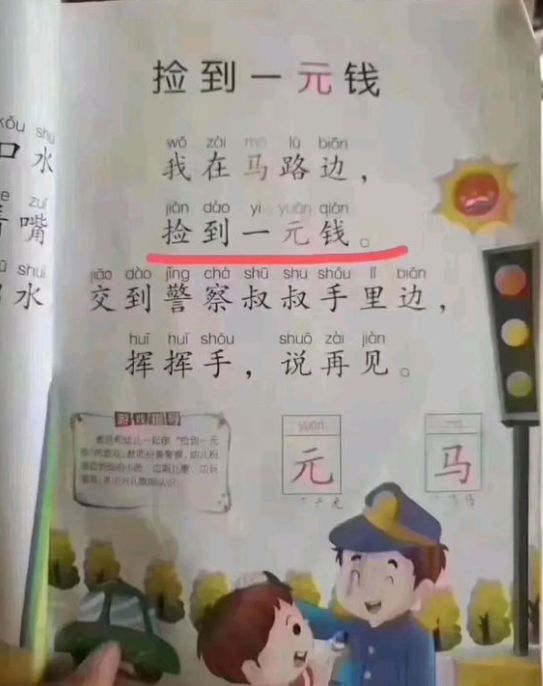 捡到一元钱
kǒu shuǐ
口水
zuǐ
嘴
shuǐ
水
wǒ zài mǎ lù biān
我在马路边，
jiǎn dào yì yuán qián
捡到一元钱。
jiāo dào jǐng chá shū shu shǒu lǐ biān
交到警察叔叔手里边，
huī huī shǒu shuō zài jiàn
挥挥手，说再见。
游戏指导
yuán
元
马